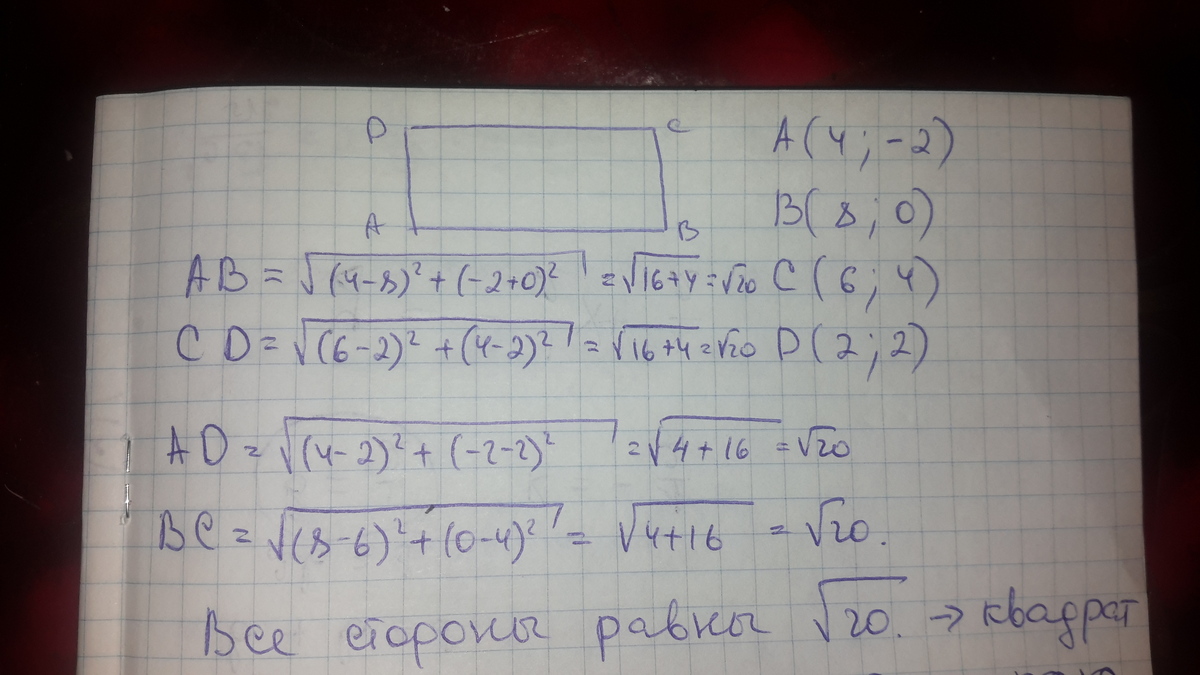 D C A(4; -2)
A B B(8; 0)
AB = √((4-8)² + (-2+0)²) = √(16+4) = √20 C(6; 4)
CD = √((6-2)² + (4-2)²) = √(16+4) = √20 D(2; 2)
AD = √((4-2)² + (-2-2)²) = √(4+16) = √20
BC = √((8-6)² + (0-4)²) = √(4+16) = √20.
Все стороны равны √20. → квадрат